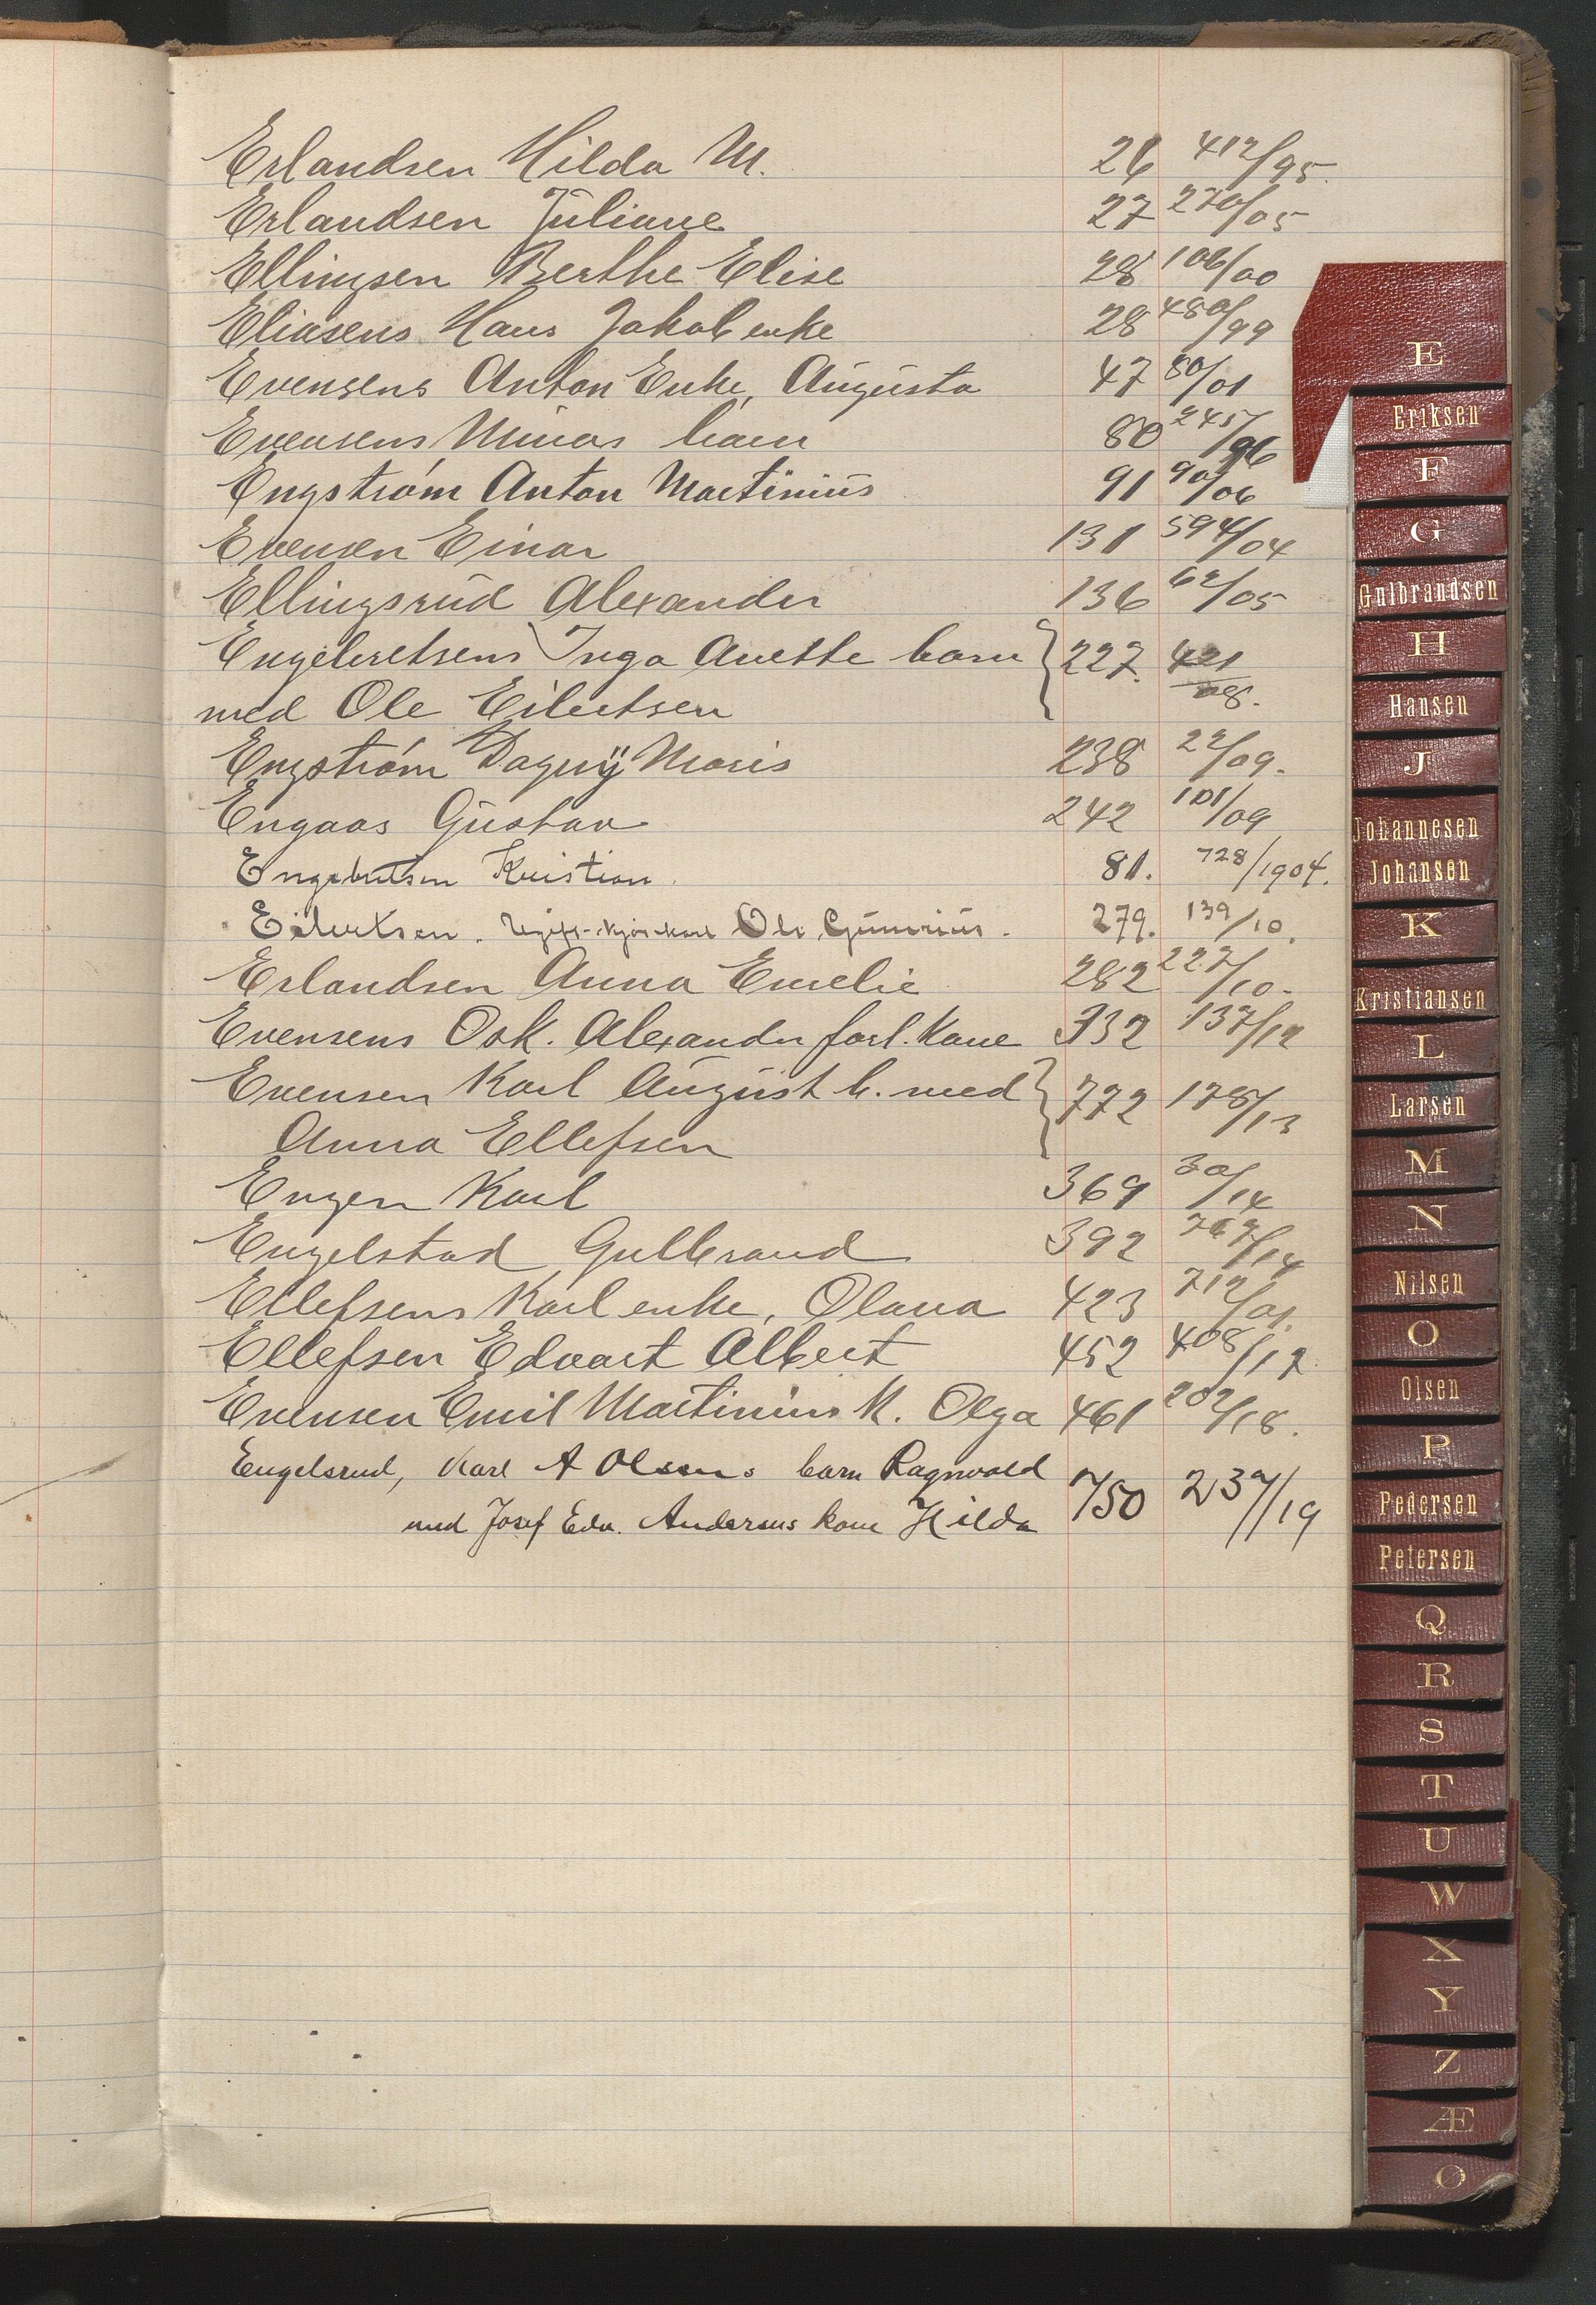 Erlandsen Hilda M. 26 412/95.
Erlandsen Juliane 27 270/05
Ellingsen Berthe Elise 28 106/00
Eliasens Hans Jakob enke 28 480/99
Evensens Anton Enke, Augusta 47 80/01
Evensens Minas barn 80 245/96
Engström Anton Martinius 91 90/06
Evensen Einar 131 594/04
Ellingsrud Alexander 136 62/05
Engebretsens Inga Anette barn 227. 421/08.
med Ole Eilertsen
Engström Dagny Maris 238 22/09.
Engaas Gustav 242 101/09
Engebretsen Kristian 81. 728/1904.
Eilertsen. Ole Gunerius. 279. 139/10.
Erlandsen Anna Emelie 282 227/10.
Evensens Osk. Alexander forl. Kone 332 137/12
Evensen Karl August b. med 772 178/13
Anna Ellefsen
Engen Karl 369 30/14
Engelstad Gulbrand 392 /14
Ellefsens Karl enke, Olava 423 712/01.
Ellefsen Edvart Albert 452 408/17.
Evensen Emil Martinius K. Olga 461 202/18.
Engelsrud, Karl A Olsens barn Ragnvald 750 239/19
med Josef Edv. Andersens kone Hilda
E
Eriksen
F
G
Gulbrandsen
H
Hansen
J
Johannesen
Johansen
K
Kristiansen
L
Larsen
M
N
Nilsen
O
Olsen
P
Pedersen
Petersen
Q
R
S
T
U
W
X
Y
Z
Æ
Ø